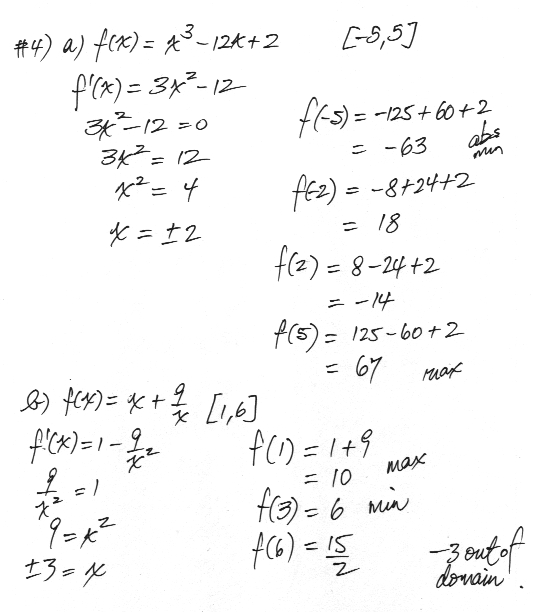 #4) a) f(x) = x³ - 12x + 2 [-5,5]
f'(x) = 3x² - 12
3x² - 12 = 0
3x² = 12
x² = 4
x = ±2
f(-5) = -125 + 60 + 2
= -63 abs min
f(-2) = -8 + 24 + 2
= 18
f(2) = 8 - 24 + 2
= -14
f(5) = 125 - 60 + 2
= 67 max
b) f(x) = x + 9/x [1,6]
f'(x) = 1 - 9/x²
9/x² = 1
9 = x²
±3 = x
f(1) = 1 + 9
= 10 max
f(3) = 6 min
f(6) = 15/2
-3 out of
domain.